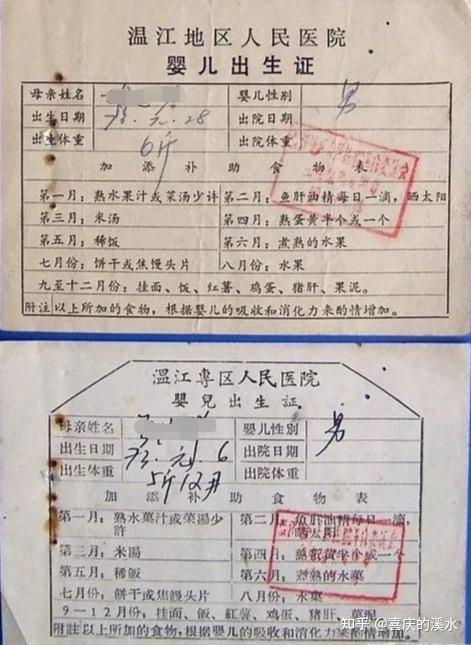 温江地区人民医院
婴儿出生证
母亲姓名 婴儿性别 男
出生日期 元.28 出院日期
出生体重 6斤 出院体重
加添补助食物表
第一月：熟水果汁或菜汤少许 第二月：鱼肝油精每日一滴，晒太阳
第三月：米汤 第四月：熟蛋黄半个或一个
第五月：稀饭 第六月：煮熟的水果
七月份：饼干或焦馒头片 八月份：水果
九至十二月份：挂面、饭、红薯、鸡蛋、猪肝、果泥。
附注以上所加的食物，根据婴儿的吸收和消化力来酌情增加。
温江専区人民医院
嬰兒出生証
母亲姓名 婴儿性别 男
出生日期 元.6 出院日期
出生体重 5斤12两 出院体重
加添补助食物表
第一月：熟水菓汁或菜湯少許 第二月：鱼肝油精每日一滴，晒太阳
第三月：米湯 第四月：熟蛋黄半个或一个
第五月：稀飯 第六月：煮熟的水菓
七月份：餅干或焦饅头片 八月份：水菓
9—12月份：挂面、飯、紅薯、鸡蛋、猪肝、菓泥
附注以上所加的食物，根据婴儿的吸收和消化力来酌情增加。
知乎 @喜庆的溪水